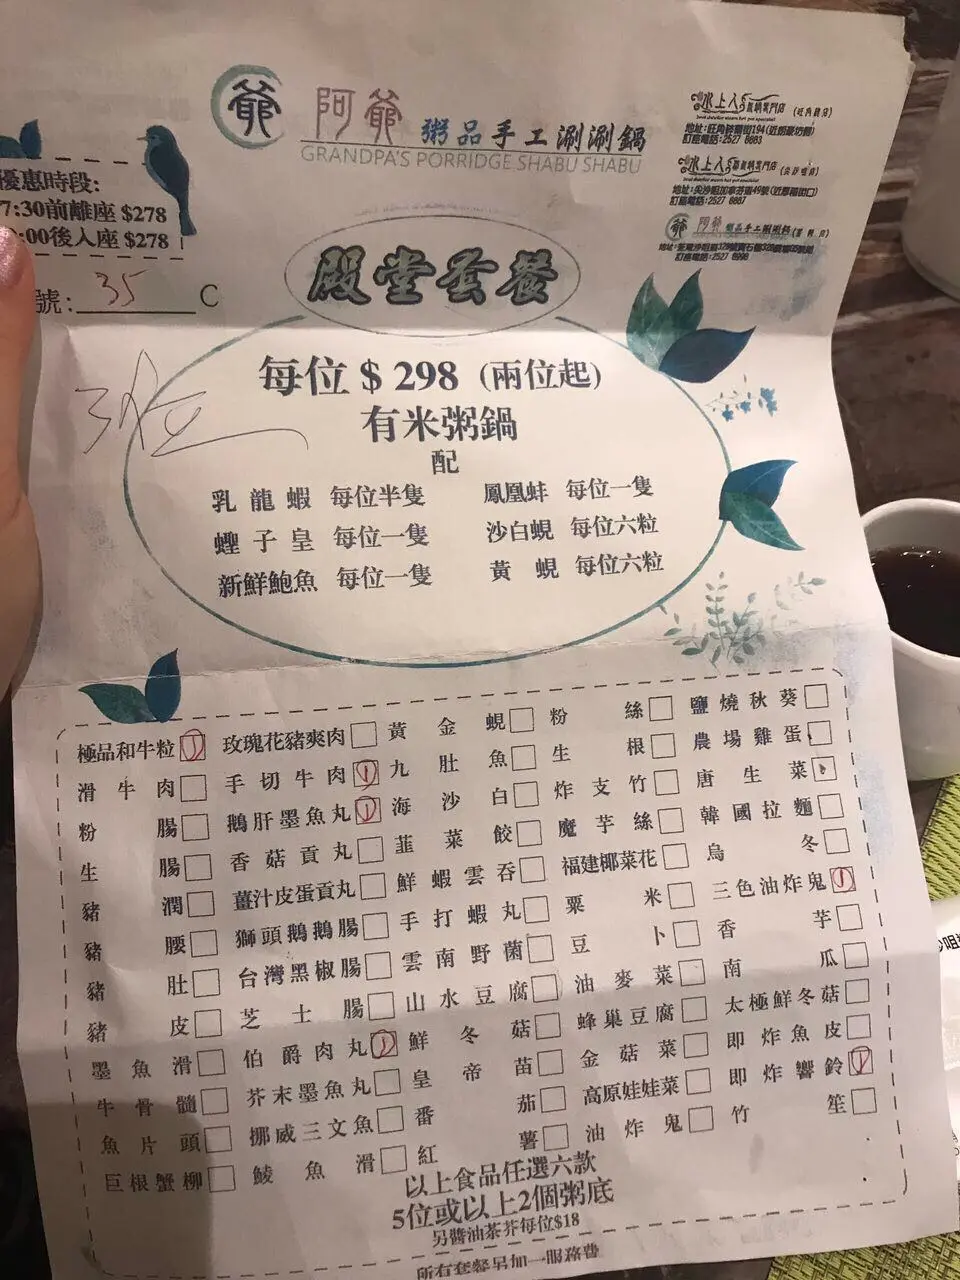 爺 阿爺 粥品手工涮涮鍋
GRANDPA'S PORRIDGE SHABU SHABU
水上人
(旺角麗店)
訂座電話:2527 8883
水上人
訂座電話:2527 8887
爺 阿爺 粥品手工涮涮鍋
訂座電話:2527 8998
優惠時段:
7:30前離座 $278
:00後入座 $278
號: 35 C
殿堂套餐
3位
每位 $ 298 (兩位起)
有米粥鍋
配
乳龍蝦 每位半隻 鳳凰蚌 每位一隻
蟶子皇 每位一隻 沙白蜆 每位六粒
新鮮鮑魚 每位一隻 黃蜆 每位六粒
極品和牛粒 1 玫瑰花豬爽肉 黃金蜆 粉絲 鹽燒秋葵
滑牛肉 手切牛肉 1 九肚魚 生根 農場雞蛋
粉腸 鵝肝墨魚丸 1 海沙白 炸支竹 唐生菜
生腸 香菇貢丸 韮菜餃 魔芋絲 韓國拉麵
豬潤 薑汁皮蛋貢丸 鮮蝦雲吞 福建椰菜花 烏冬
豬腰 獅頭鵝鵝腸 手打蝦丸 粟米 三色油炸鬼 1
豬肚 台灣黑椒腸 雲南野菌 豆卜 香芋
豬皮 芝士腸 山水豆腐 油麥菜 南瓜
墨魚滑 伯爵肉丸 1 鮮冬菇 蜂巢豆腐 太極鮮冬菇
牛骨髓 芥末墨魚丸 皇帝苗 金菇菜 即炸魚皮
魚片頭 挪威三文魚 番茄 高原娃娃菜 即炸響鈴 1
巨根蟹柳 鯪魚滑 紅薯 油炸鬼 竹笙
以上食品任選六款
5位或以上2個粥底
另醬油茶芥每位$18
所有套餐另加一服務費